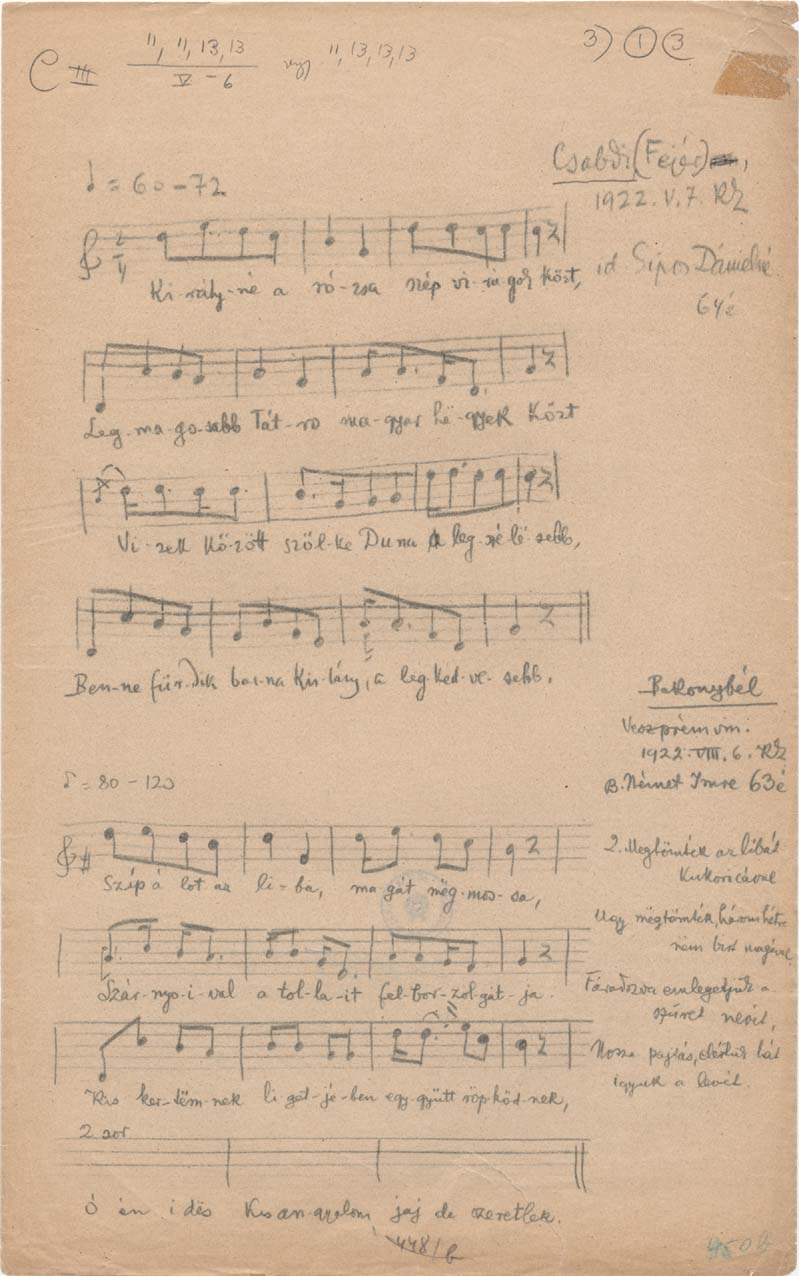 C III 11, 11, 13, 13 / V – 6 vagy 11, 13, 13, 13
3) ① 3
Csabdi (Fejér),
1922. V. 7. RZ
♩ = 60 – 72
id Sipos Dánielné
64 é
2/4
Ki-rály-né a ró-zsa szép vi-rágok közt,
Leg-ma-gosabb Tát-ra ma-gyar hë-gyek közt
Vi-zek kö-zött szöl-ke Duna a leg-
Ben-ne für-dik bar-na kis-lány, a leg-ked-ve-sebb.
Bakonybél
Veszprém vm.
1922. VIII. 6. RZ
B. Német Imre 63é
= 80 – 120
Szíp á lot az li-ba, ma-gát mëg-mos-sa,
Szár-nya-i-val a tol-la-it fel-bor-zol-gat-ja.
Kis ker-tëm-nek li-get-jé-ben egy-gyütt röpköd-nek,
2 sor
Ó én i dës kis an-gyalom, jaj de szeretlek.
2. Megtömték az libát
kukoricával
Ugy mëgtömték, három hét
nem bir magával
Fáradozva emlegetjük a
szüret nevét,
Nossza pajtás, hát
igyuk a levét.
448/b